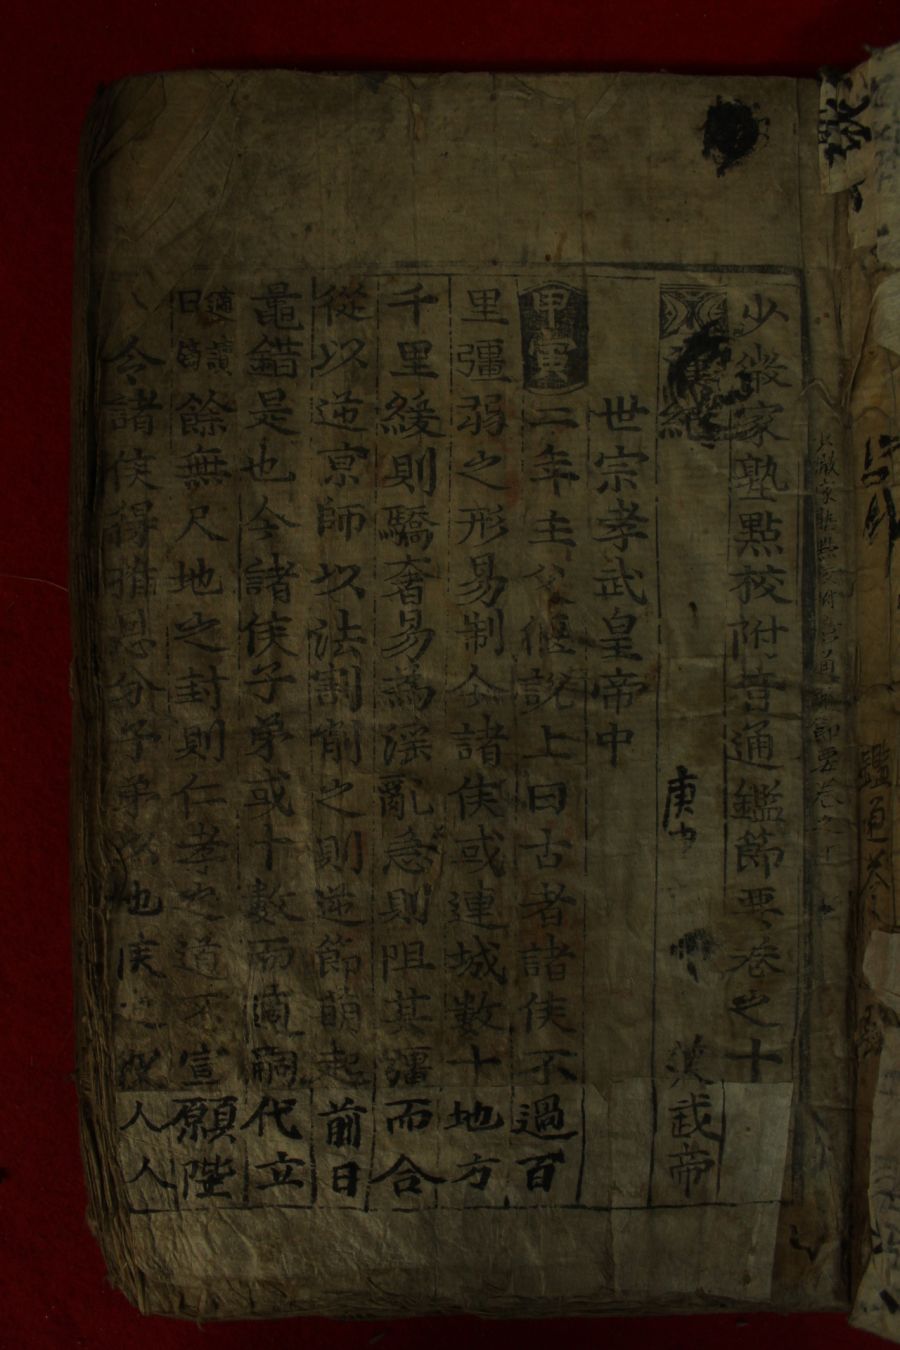 少微家塾點校附音通鑑節要卷之十
紀 漢武帝
世宗孝武皇帝中
甲寅 二年主父偃說上曰古者諸侯不過百
里彊弱之形易制今諸侯或連城數十地方
千里緩則驕奢易爲淫亂急則阻其彊而合
從以逆京師以法割削之則逆節萌起前日
鼂錯是也今諸侯子弟或十數而適嗣代立
適讀曰嫡 餘無尺地之封則仁孝之道不宣願陛
令諸侯得推恩分子弟以地侯之 人人